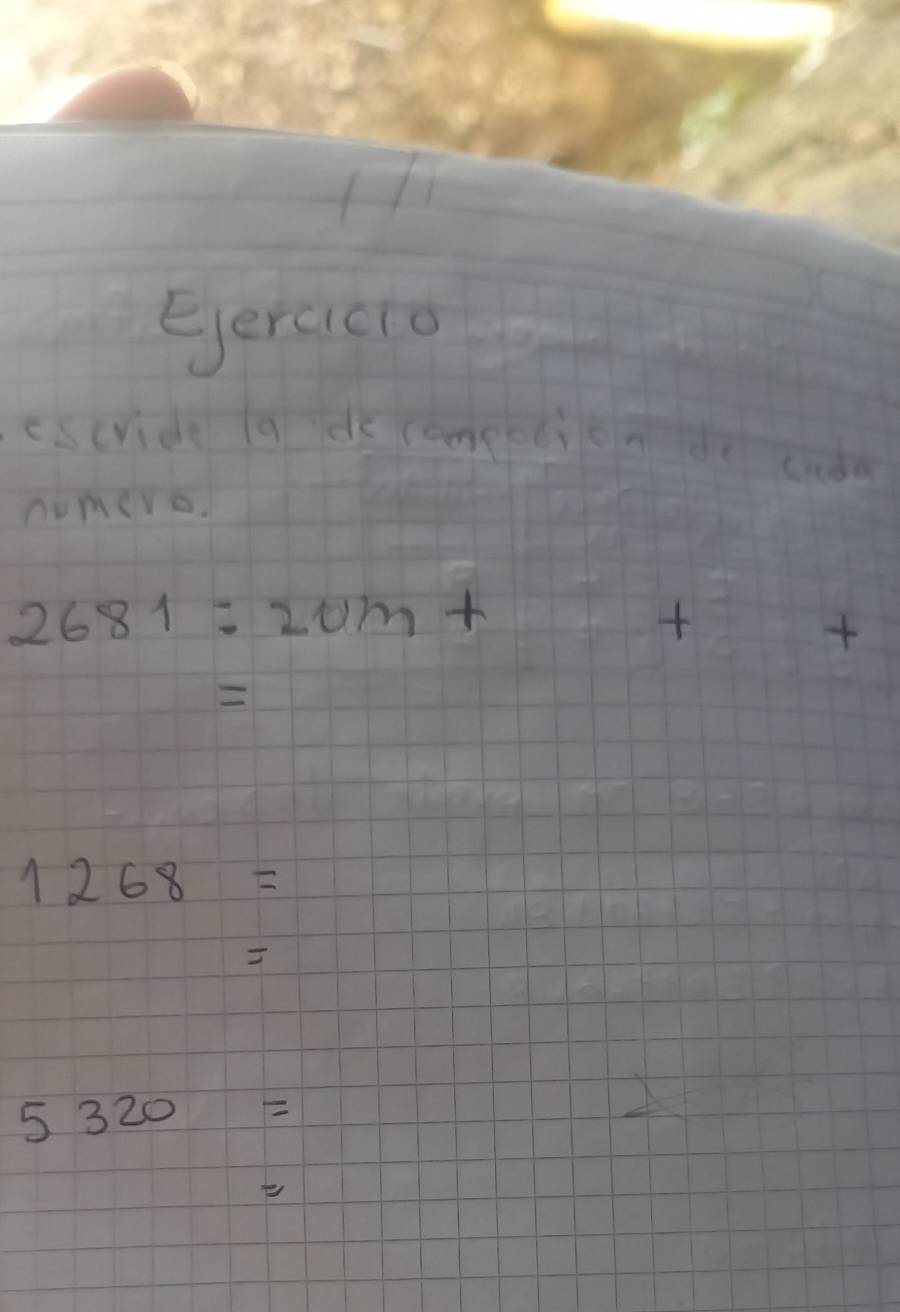 Ejercicio
escride la de compocicn de cada
numero.
2681 = 2um + + +
=
1268 =
=
5320 =
=